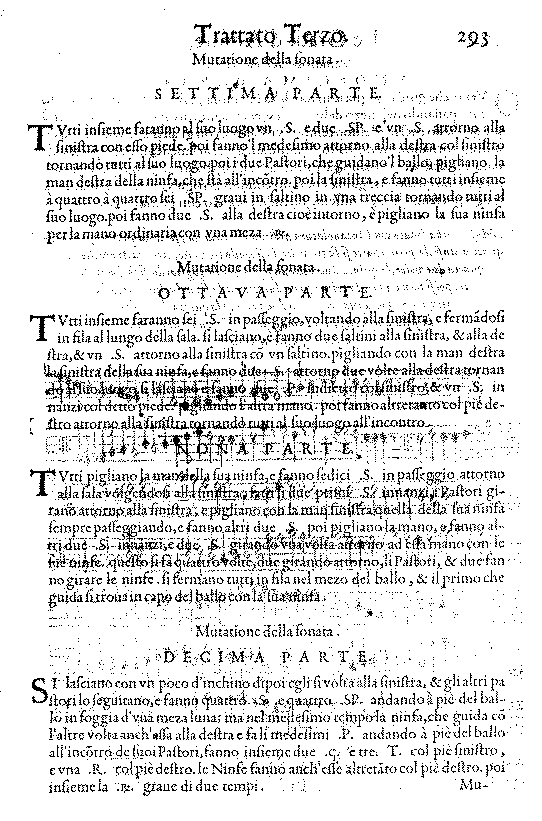 Trattato Terzo. 293
Mutatione della sonata.
SETTIMA PARTE
TVtti insieme faranno al suo luogo vn .S. e due .SP. e vn .S. attorno alla
sinistra con esso piede. poi fanno l medesimo attorno alla destra col sinistro
tornando tutti al suo luogo. poi i due Pastori, che guidano'l ballo, pigliano la
man destra della ninfa, che stà all'incõtro. poi la sinistra, e fanno tutti insieme
à quattro à quattro sei .SP. graui in saltino in vna treccia tornando tutti al
suo luogo. poi fanno due .S. alla destra cioè intorno, e pigliano la sua ninfa
per la mano ordinaria con vna meza .R.
Mutatione della sonata.
OTTAVA PARTE.
TVtti insieme faranno sei .S. in passeggio, voltando alla sinistra, e fermãdosi
in fila al lungo della sala. si lasciano, e fanno due saltini alla sinistra, & alla de
stra, & vn .S. attorno alla sinistra cõ vn saltino. pigliando con la man destra
la sinistra della sua ninfa, e fanno due .S. attorno due volte alla destra tornan
do al suo luogo. si lasciano e fanno due .P. indietro col sinistro, & vn .S. in
nanzi col detto piede. pigliando l'altra mano. poi fanno altretanto col piè de-
stro attorno alla sinistra tornando tutti al suo luogo all'incontro.
NONA PARTE.
TVtti pigliano la man della sua ninfa, e fanno sedici .S. in passeggio attorno
alla sala volgendosi alla sinistra, due .S. innanzi, i Pastori gi-
rano attorno alla sinistra, e pigliano con la man sinistra quella della sua ninfa
sempre passeggiando, e fanno altri due .S. poi pigliano la mano, e fanno al-
tri due .S. innanzi, e due .S. girando vna volta attorno ad essa mano con le
tre ninfe. questo si fa quattro volte, due girando attorno, li Pastori, & due fan
no girare le ninfe. si fermano tutti in fila nel mezo del ballo, & il primo che
guida si troua in capo del ballo con la sua ninfa.
Mutatione della sonata.
DECIMA PARTE.
SI lasciano con vn poco d'inchino dipoi egli si volta alla sinistra, & gli altri pa
stori lo seguitano, e fanno quattro .S. e quattro .SP. andando à piè del bal-
lo in foggia d'vna meza luna: ma nel medesimo tempo la ninfa, che guida cõ
l'altre volta anch'essa alla destra e fa li medesimi .P. andando à piè del ballo
all'incõtro de suoi Pastori, fanno insieme due .c. e tre. T. col piè sinistro,
e vna .R. col piè destro. le Ninfe fanno anch'esse altretãto col piè destro. poi
insieme la .R. graue di due tempi. Mu-